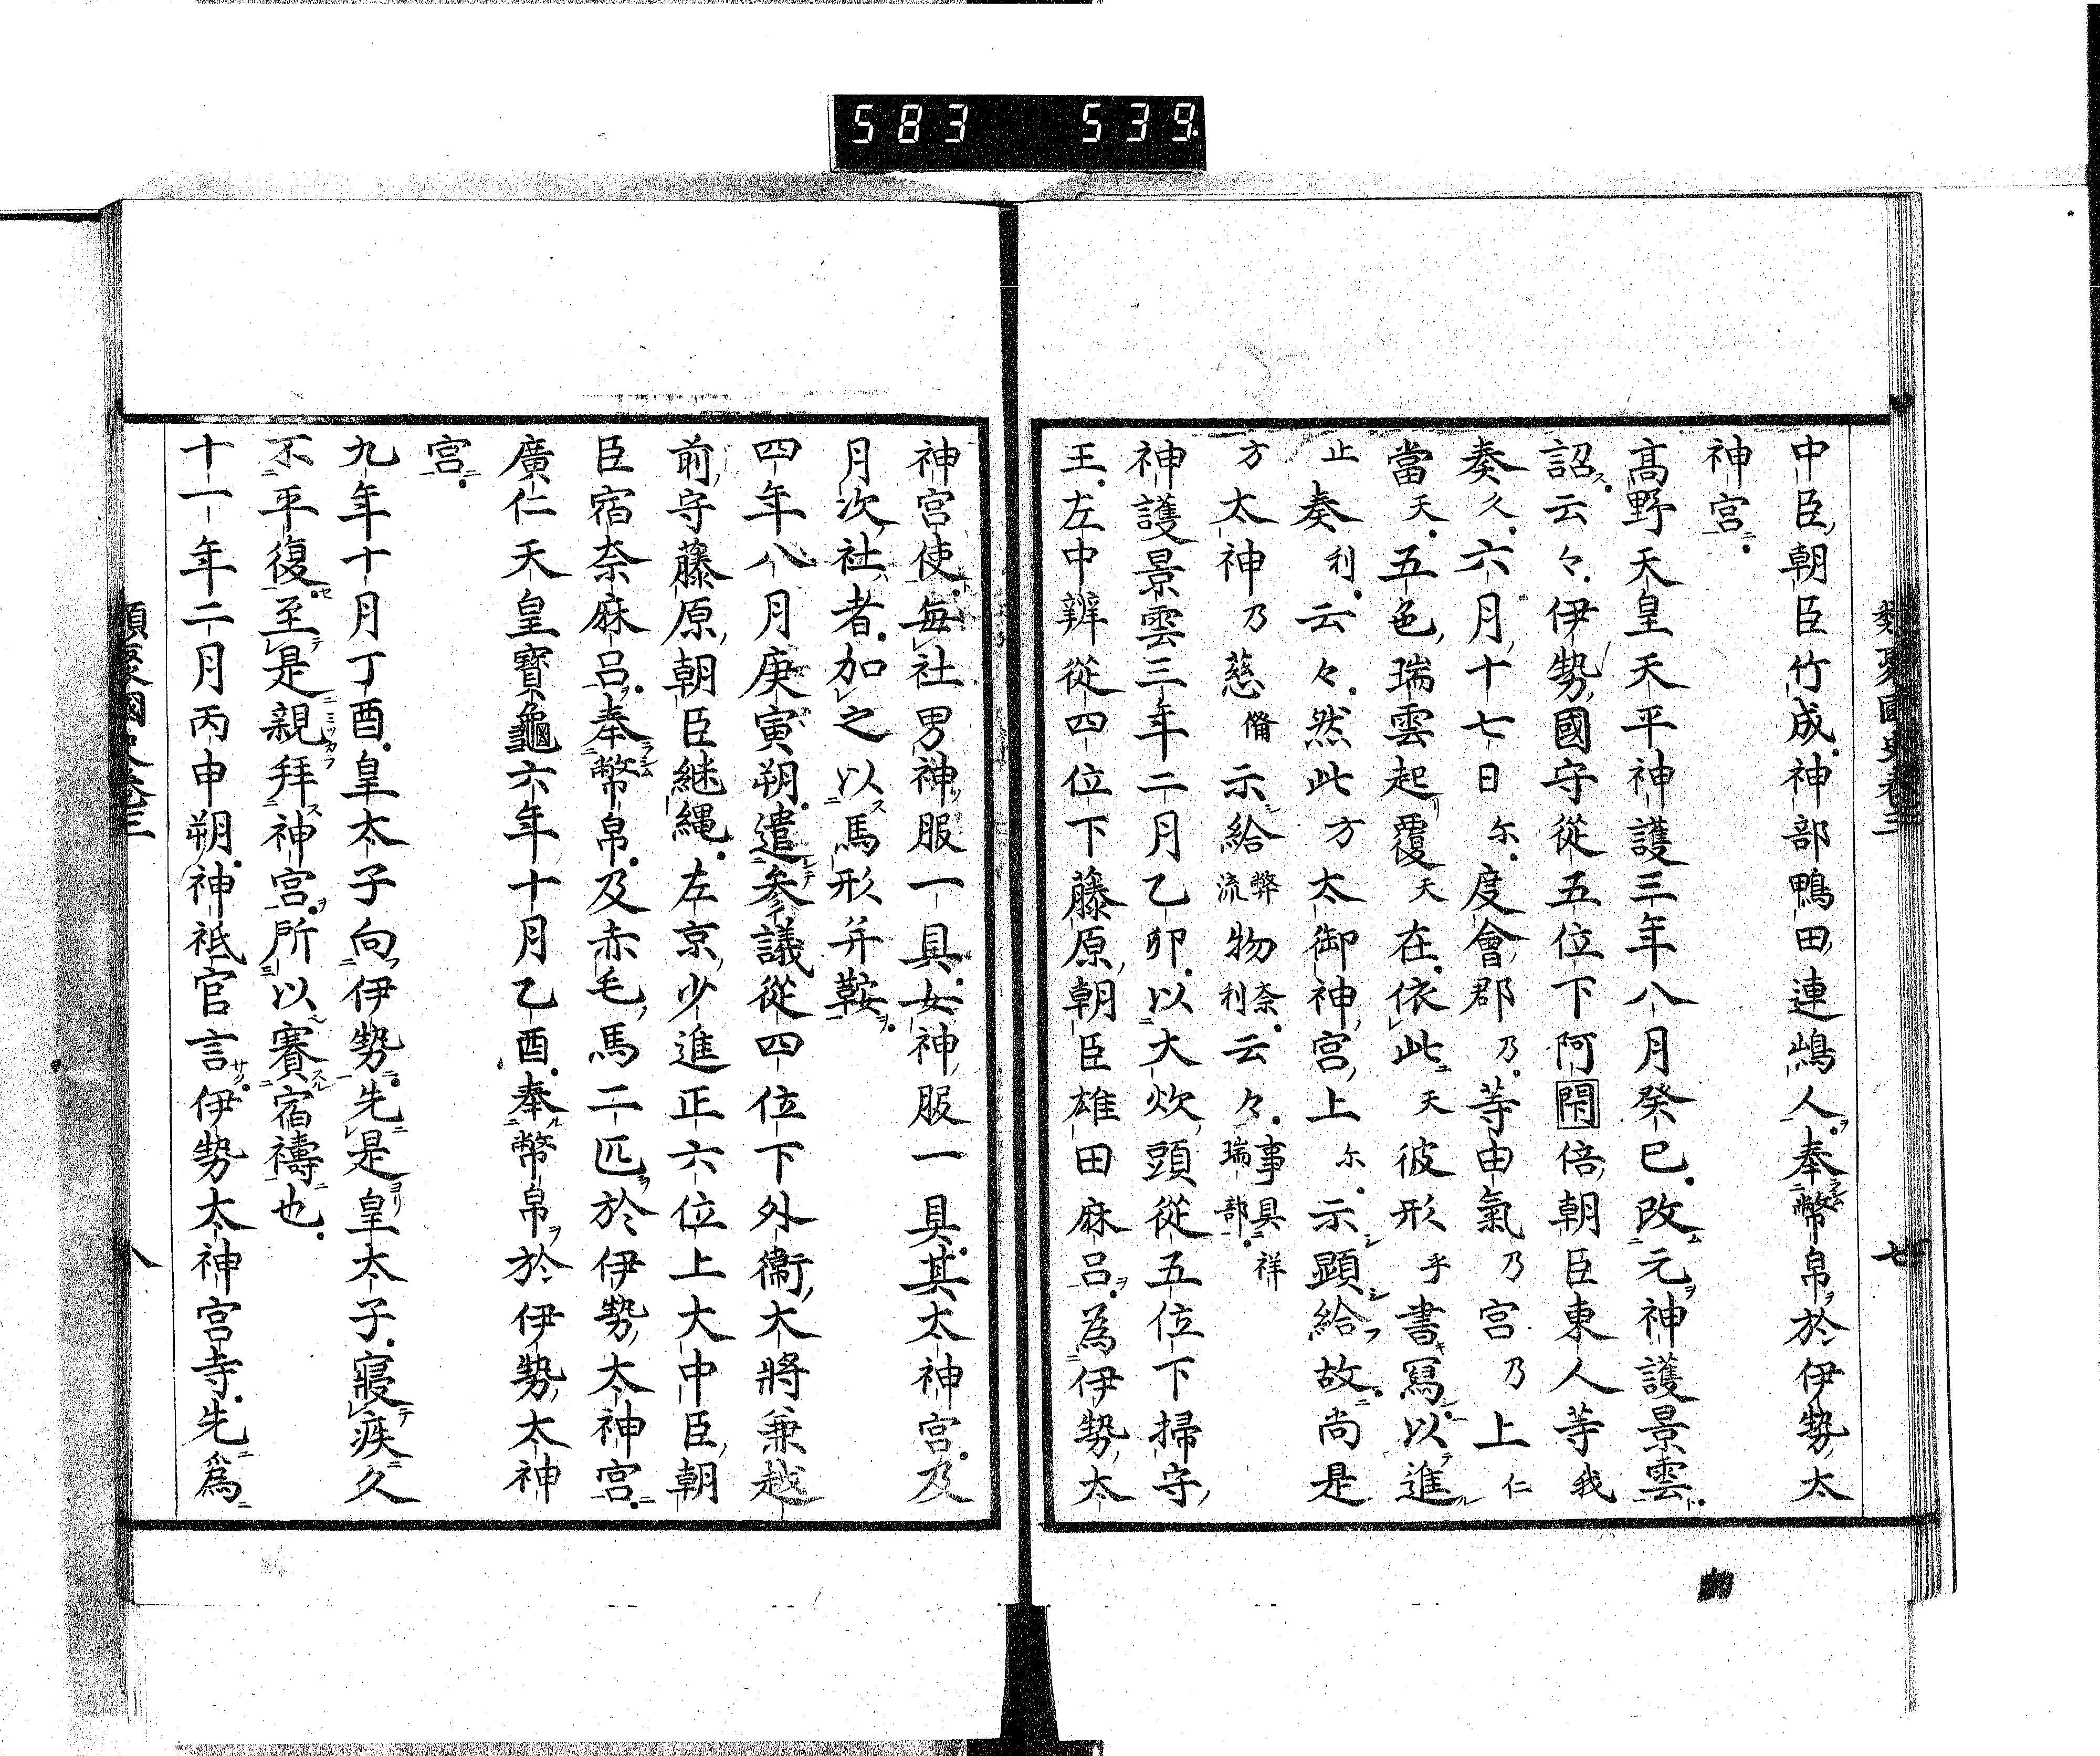 583 539
類聚國史卷三 七
中臣朝臣竹成神部鴨田連嶋人奉幣帛於伊勢太
神宮
髙野天皇天平神護三年八月癸巳改元神護景雲
詔云々伊勢國守從五位下阿閇倍朝臣東人等我
奏久六月十七日尓度會郡乃等由氣乃宮乃上仁
當天五色瑞雲起覆天在依此天彼形乎書冩以進
止奏利云々然此方太御神宮上尓示顕給故尚是
方太神乃慈備示給弊流物奈利云々事具祥瑞部
神護景雲三年二月乙卯以大炊頭從五位下掃守
王左中辨從四位下藤原朝臣雄田麻呂為伊勢太
神宮使毎社男神服一具女神服一具其太神宮及
月次社者加之以馬形并鞍
四年八月庚寅朔遣參議從四位下外衞大將兼越
前守藤原朝臣継縄左京少進正六位上大中臣朝
臣宿奈麻呂奉幣帛及赤毛馬二匹於伊勢太神宮
廣仁天皇寳龜六年十月乙酉奉幣帛於伊勢太神
宮
九年十月丁酉皇太子向伊勢先是皇太子寢疾久
不平復至是親拜神宮所以賽宿禱也
十一年二月丙申朔神祗官言伊勢太神宮寺先爲
類聚國史卷三 八